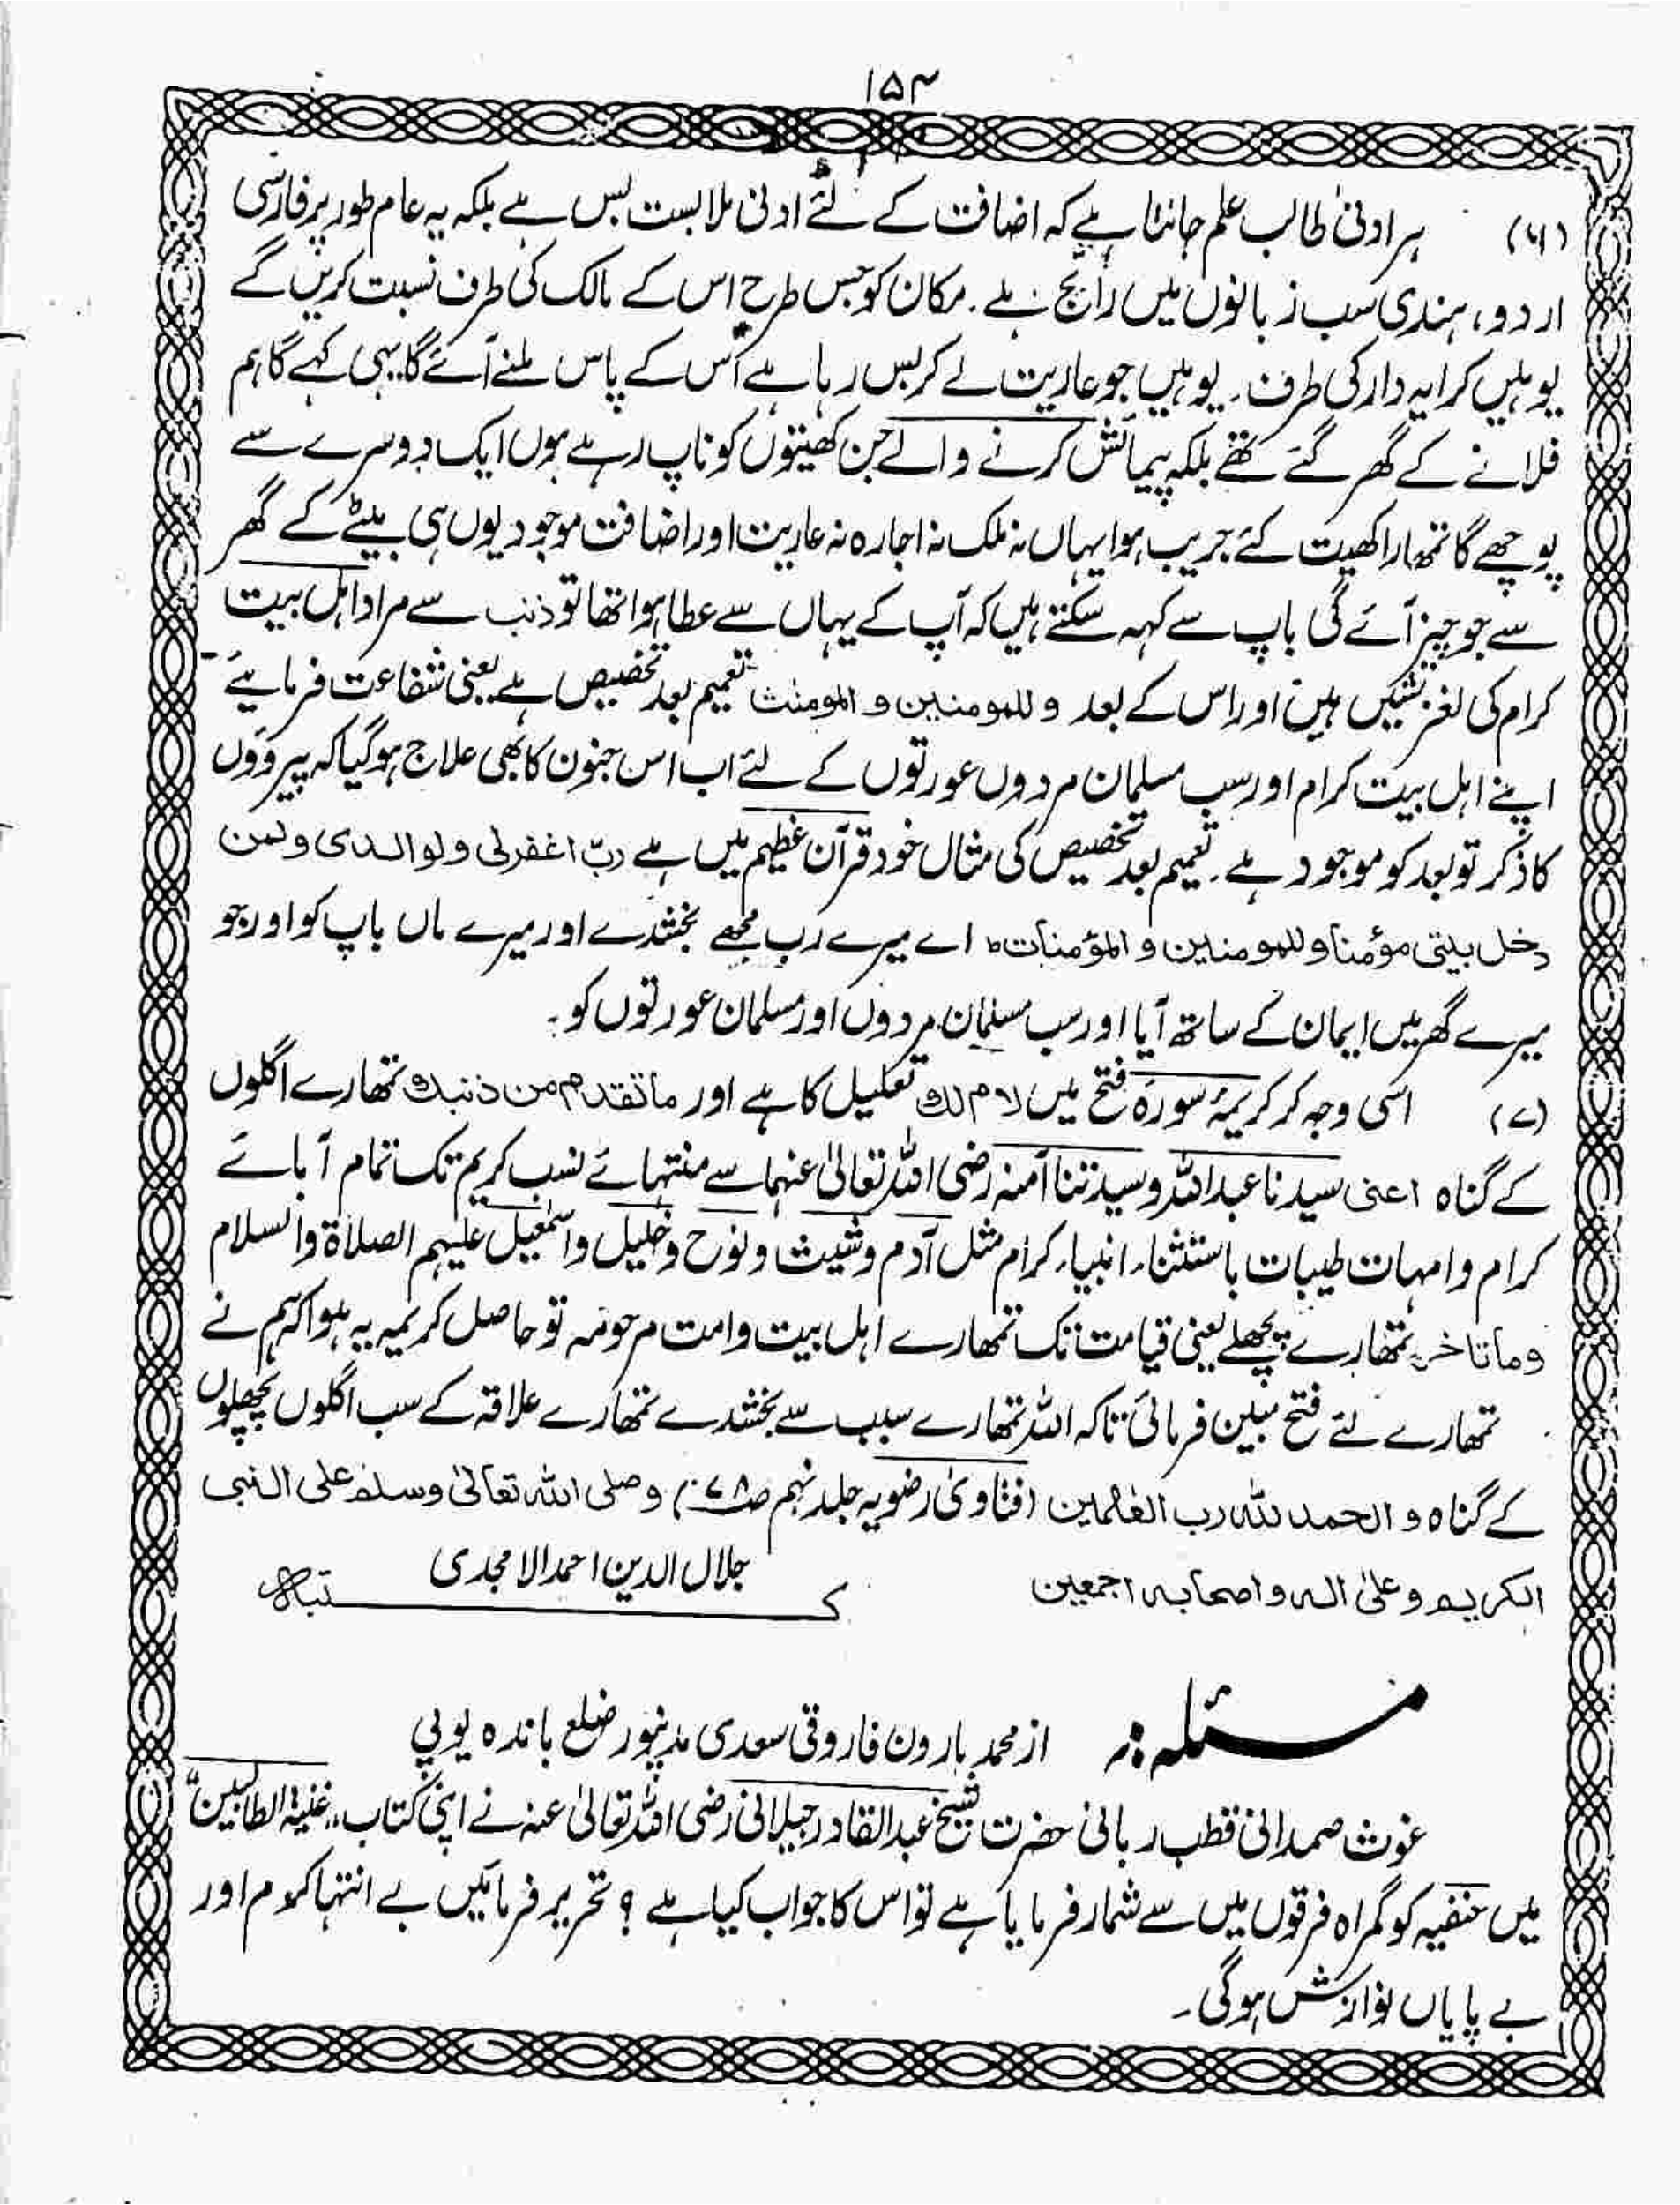 ۱۵۴
(۶) ہر ادنیٰ طالب علم جانتا ہے کہ اضافت کے لئے ادنیٰ ملابست بس ہے بلکہ یہ عام طور پر فارسی
اردو، ہندی سب زبانوں میں رائج ہے۔ مکان کو جس طرح اس کے مالک کی طرف نسبت کریں گے
یوہیں کرایہ دار کی طرف۔ یوہیں جو عاریت لے کر بس رہا ہے اس کے پاس ملنے آئے گا یہی کہے گا ہم
فلانے کے گھر گئے تھے بلکہ پیمائش کرنے والے جن کھیتوں کو ناپ رہے ہوں ایک دوسرے سے
پوچھے گا تمھارا کھیت کئے جریب ہوا یہاں نہ ملک نہ اجارہ نہ عاریت اور اضافت موجود یوں ہی بیٹے کے گھر
سے جو چیز آئے گی باپ سے کہہ سکتے ہیں کہ آپ کے یہاں سے عطا ہوا تھا تو ذنب سے مراد اہل بیت
کرام کی لغزشیں ہیں اور اس کے بعد وللمومنین و المومنٰت تعمیم بعد تخصیص ہے یعنی شفاعت فرمائیے
اپنے اہل بیت کرام اور سب مسلمان مردوں عورتوں کے لئے اب اس جنون کا بھی علاج ہو گیا کہ پیروؤں
کا ذکر تو بعد کو موجود ہے۔ تعمیم بعد تخصیص کی مثال خود قرآن عظیم میں ہے ربّ اغفرلی ولوالدی ولمن
دخل بیتی مؤمنا وللمومنین و المؤمنات ہ اے میرے رب مجھے بخشدے اور میرے ماں باپ کو اور جو
میرے گھر میں ایمان کے ساتھ آیا اور سب مسلمان مردوں اور مسلمان عورتوں کو۔
(۷) اسی وجہ کر کریمۂ سورۂ فتح میں لام لک تعلیل کا ہے اور ماتقدم من ذنبک تمھارے اگلوں
کے گناہ اعنی سیدنا عبداللہ و سیدتنا آمنہ رضی اللہ تعالیٰ عنہما سے منتہائے نسب کریم تک تمام آبائے
کرام و امہات طیبات باستثناء انبیاء کرام مثل آدم و شیث و نوح و خلیل و اسمٰعیل علیہم الصلاۃ والسلام
وماتاخر تمھارے پچھلے یعنی قیامت تک تمھارے اہل بیت و امت مرحومہ تو حاصل کریمہ یہ ہوا کہ ہم نے
تمھارے لئے فتح مبین فرمائی تاکہ اللہ تمھارے سبب سے بخشدے تمھارے علاقہ کے سب اگلوں پچھلوں
کے گناہ و الحمد للہ رب العٰلمین (فتاویٰ رضویہ جلد نہم ص۷۸) وصلی اللہ تعالیٰ وسلم علی النبی
الکریم وعلیٰ الہ واصحابہ اجمعین
جلال الدین احمد الامجدی
کتبہ
مسئلہ: از محمد ہارون فاروقی سعدی مدنپور ضلع باندہ یوپی
غوث صمدانی قطب ربانی حضرت شیخ عبدالقادر جیلانی رضی اللہ تعالیٰ عنہ نے اپنی کتاب "غنیۃ الطالبین"
میں حنفیہ کو گمراہ فرقوں میں سے شمار فرمایا ہے تو اس کا جواب کیا ہے ؟ تحریر فرمائیں بے انتہا کرم اور
بے پایاں نوازش ہوگی۔